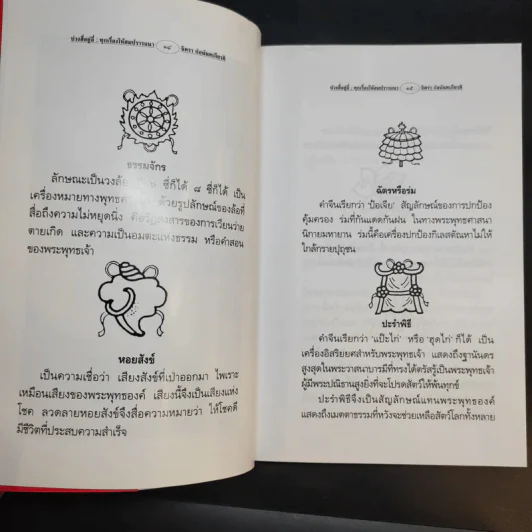 ปางสี่อยู่ดี : ทุกเรื่องให้สมปรารถนา ๑๘ จิตรา ก่อนันทเกียรติ
ธรรมจักร
ลักษณะเป็นวงล้อ ๖ ซี่ก็ได้ ๘ ซี่ก็ได้ เป็น
เครื่องหมายทางพุทธ ด้วยรูปลักษณ์ของล้อที่
สื่อถึงความไม่หยุดนิ่ง คือวัฏสงสารของการเวียนว่าย
ตายเกิด และความเป็นอมตะแห่งธรรม หรือคำสอน
ของพระพุทธเจ้า
หอยสังข์
เป็นความเชื่อว่า เสียงสังข์ที่เป่าออกมา ไพเราะ
เหมือนเสียงของพระพุทธองค์ เสียงนี้จึงเป็นเสียงแห่ง
โชค ลวดลายหอยสังข์จึงสื่อความหมายว่า ให้โชคดี
มีชีวิตที่ประสบความสำเร็จ
ปางสี่อยู่ดี : ทุกเรื่องให้สมปรารถนา ๑๙ จิตรา ก่อนันทเกียรติ
ฉัตรหรือร่ม
คำจีนเรียกว่า 'ป้อเจีย' สัญลักษณ์ของการปกป้อง
คุ้มครอง ร่มที่กันแดดกันฝน ในทางพระพุทธศาสนา
นิกายมหายาน ร่มนี้คือเครื่องปกป้องกิเลสตัณหาไม่ให้
ใกล้กรายปุถุชน
ปะรำพิธี
คำจีนเรียกว่า 'แป๊ะไก่' หรือ 'ฮุดไก่' ก็ได้ เป็น
เครื่องอิสริยยศสำหรับพระพุทธเจ้า แสดงถึงฐานันดร
สูงสุดในพระวาสนาบารมีที่ทรงได้ตรัสรู้เป็นพระพุทธเจ้า
ผู้มีพระปณิธานสูงยิ่งที่จะโปรดสัตว์ให้พ้นทุกข์
ปะรำพิธีจึงเป็นสัญลักษณ์แทนพระพุทธองค์
แสดงถึงเมตตาธรรมที่หวังจะช่วยเหลือสัตว์โลกทั้งหลาย